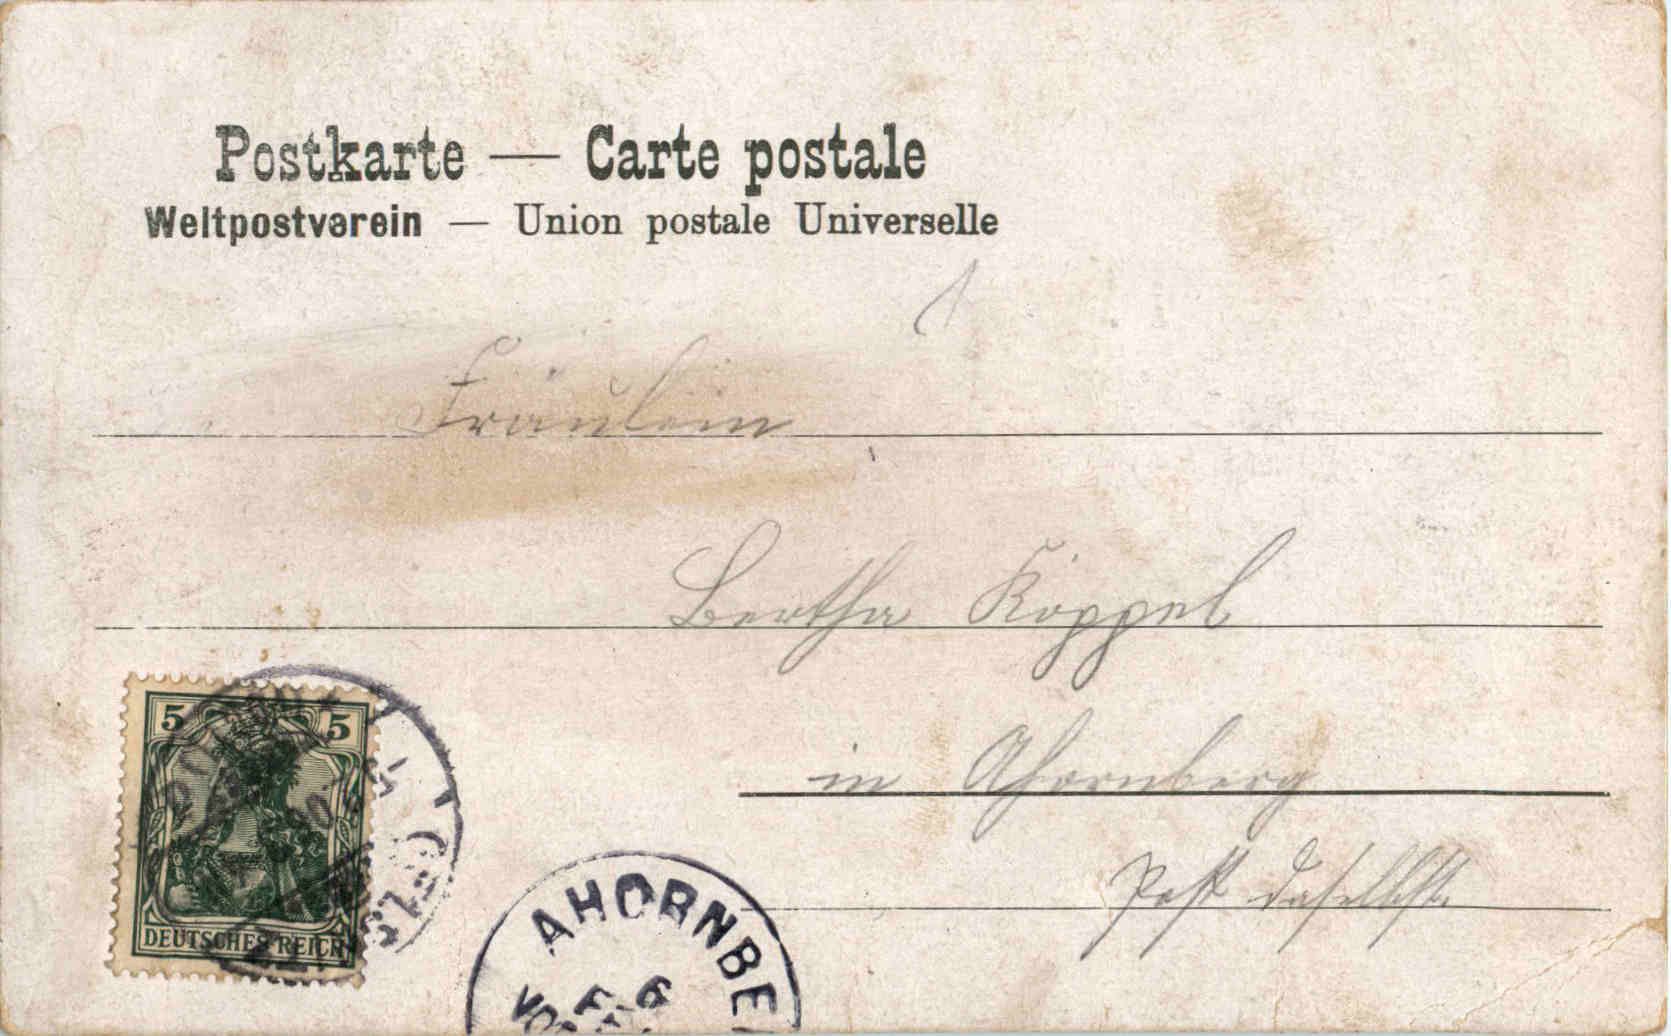 Postkarte — Carte postale
Weltpostverein — Union postale Universelle
Fräulein
Bertha Köppel
in Ahornberg
Post daselbst.
5 5
DEUTSCHES REICH
AHORNBE
6